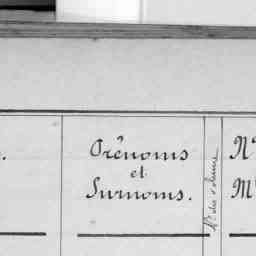 Prénoms
et
Surnoms.
N° du volume
N°
M